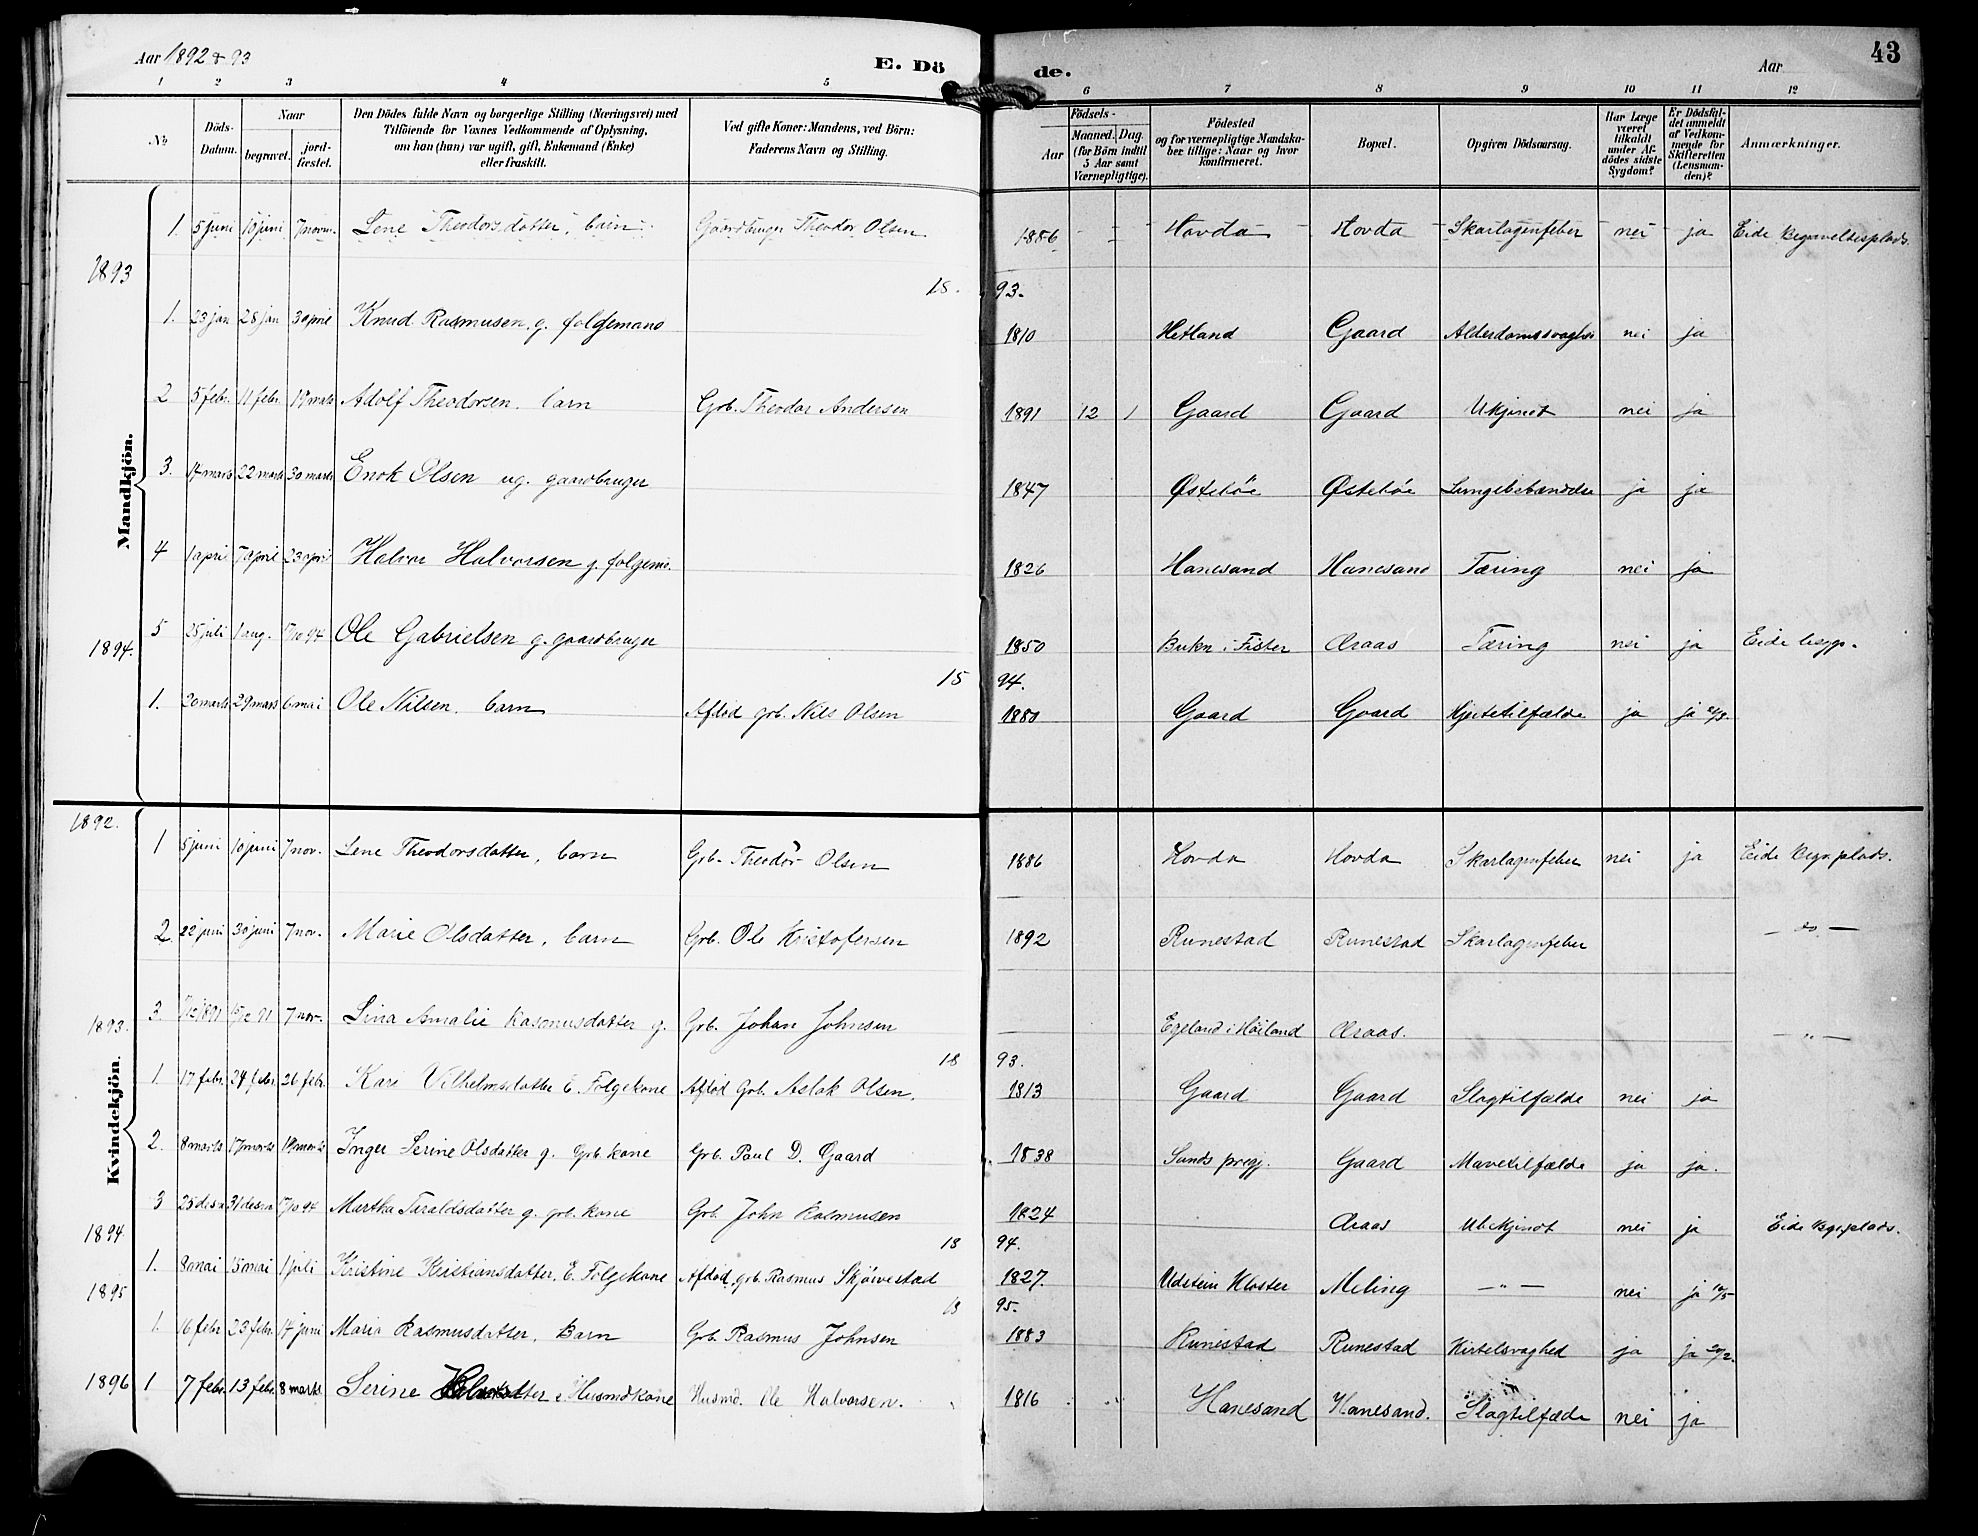 Aar 1892 & 93
E. Dö
de.
Aar
43
1 2 3 4 5 6 7 8 9 10 11 12
No
Döds-Datum.
Naar
begravet.
jordfæstet.
Den Dödes fulde Navn og borgerlige Stilling (Næringsvei) med
Tilföiende for Voxnes Vedkommende af Oplysning,
om han (hun) var ugift, gift, Enkemand (Enke)
eller fraskilt.
Ved gifte Koner: Mandens, ved Börn:
Faderens Navn og Stilling.
Födsels-
Aar
Maaned. Dag.
(for Börn indtil
5 Aar samt
Værnepligtige).
Födested
og for værnepligtige Mandskaber tillige: Naar og hvor
konfirmeret.
Bopæl.
Opgiven Dödsaarsag.
Har Læge
været
tilkaldt
under Afdödes sidste
Sygdom?
Er Dödsfaldet anmeldt
af Vedkommende for
Skifteretten
(Lensmanden)?
Anmærkninger.
Mandkjön.
1. 5 juni 10 juni 7 novm. Lene Theodorsdatter, barn. Gaardbruger Theodor Olsen 1886 Hovda Hovda Skarlagenfeber nei ja Eide Begravelsesplads.
1893
18. 93.
1. 23 jan 28 jan 3 april Knud Rasmusen. g. folgemand 1810 Hetland Gaard Alderdomssvaghed nei ja
2 5 febr. 11 febr. 19 marts Adolf Theodorsen. barn Grb. Theodor Andersen 1891 12 1 Gaard Gaard Ukjendt nei ja
3. 17 marts 22 marts 30 marts Enok Olsen ug. gaardbruger 1847 Østebøe Østebøe Lungebetændelse ja ja
4 1 april 7 april 23 april Halvor Halvorsen g. folgemd. 1826 Hanesand Hanesand Tæring nei ja
5 25 juli 1 aug. 17/10 94 Ole Gabrielsen g. gaardbruger 1850 Bukn i Fister Aaraas Tæring nei ja Eide begrp.
1894.
15 94.
1. 20 marts 29 mars 6 mai Ole Nilsen. barn Afdød grb. Nils Olsen 1880 Gaard Gaard Hjertetilfælde ja ja
Kvindekjön.
1892.
1 5 juni 10 juni 7 nov. Lene Theodorsdatter, barn Grb. Theodor Olsen 1886 Hovda Hovda Skarlagenfeber nei ja Eide Begr.plads.
2. 22 juni 30 juni 7 nov. Marie Olsdatter, barn Grb. Ole Kristofersen 1892 Runestad Runestad Skarlagenfeber – do –
3. 7/12 1891 15/12 91 7 nov. Lina Amalie Rasmusdatter g. Grb. Johan Johnsen Egeland i Høiland Aaraas. – „ –
1893.
18 93.
1. 17 febr. 24 febr. 26 febr. Kari Vilhelmsdatter E. Folgekone Afdød Grb. Aslak Olsen. 1813 Gaard Gaard Slagtilfælde nei ja
2. 8 marts 17 marts 19 marts Inger Serine Olsdatter g. Grb. kone Grb. Paul D. Gaard 1838 Sands prgj. Gaard Mavetilfælde ja ja.
3 25 desm 31 desm 17/10 94 Martha Taraldsdatter g. grb. kone Grb. John Rasmusen 1824 Aaraas Ubekjendt nei ja Eide Bgr.plads.
1894.
18 94.
1. 8 mai 15 mai 1 juli Kristine Kristiansdatter. E. Folgekone Afdød grb. Rasmus Skjørvestad 1827. Udstein Kloster Meling – „ – nei ja
1895
18 95.
1. 16 febr 23 febr. 14 juni Maria Rasmusdatter. Barn Grb. Rasmus Johnsen 1883 Runestad Runestad Kirtelsvaghed ja ja
1896 1 7 febr. 13 febr. 8 marts Serine e. Husmdkone Husmd. Ole Halvorsen. 1816 Hanesand Hanesand. Slagtilfælde nei ja